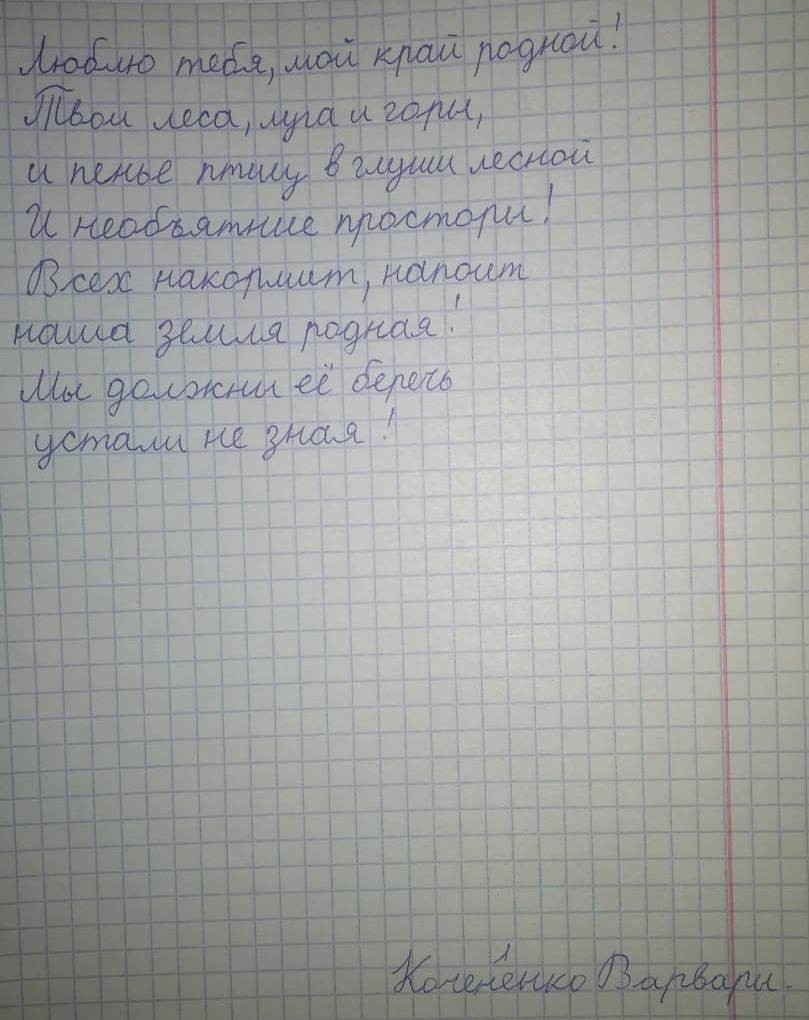 Люблю тебя, мой край родной!
Твои леса, луга и горы,
и пенье птиц в глуши лесной
И необъятные просторы!
Всех накормит, напоит
наша земля родная!
Мы должны её беречь
устали не зная!
Коченёнко Варвары.